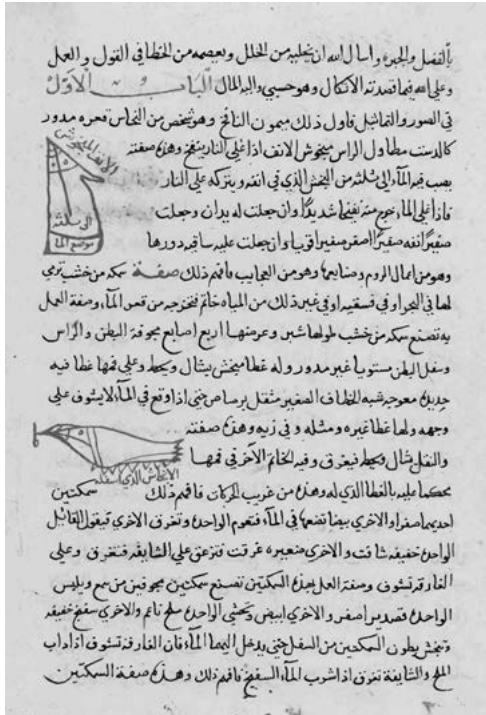 بالفضل والخيره واسال الله ان يخليه من الخلل ويعصمه من الخطا في القول والعمل
وعلى الله فيما قصدته الاتكال وهو حسبي واليه المال الباب الاول
في الصور والتماثيل فاول ذلك ميمون النافخ وهو شخص من النحاس قعره مدور
كالدست مطاول الراس مبخوش الانف اذا غلي النار ينفخ وهذه صفته
الانف المبخوش
يصب فيه الماء الى ثلثه من البخش الذي في انفه ويتركه على النار
فاذا غلى الماء خرج منه نفخا شديدا وان جعلت له يدان وجعلت
الى ثلثه
موضع الما
صفيرا انفه صفيرا اصفر صفيرا قويا وان جعلت عليه ساقيه دورها
وهو من اعمال الروم وصنايعها وهو من العجايب فافهم ذلك صفة سمكه من خشب ترمي
لها في البحر او في فسقيه او في غير ذلك من المياه خاتم فتخرجه من قعر الماء وصفة العمل
به تصنع سمكه من خشب طولها شبر وعرضها اربع اصابع مجوفة البطن والراس
وسفل البطن مستويا غير مدور وله غطا مبخش يشال ويحط وعلى فمها غطا فيه
حديده معوجه شبه الخطاف الصغير مثقل برصاص حتى اذا وقع في الماء لا يشوف على
وجهه ولها غطا غيره ومثله وفي زيه وهذه صفته
والثقل يشال ويحط فيغرق وفيه الخاتم الاخر في فمها
الابخاش الذي اسفله
بحكما عليه بالغطا الذي له وهذه من غريب الحركات فافهم ذلك سمكتين
احديهما صفرا والاخرى بيضا تضعها في الماء فتعوم الواحده وتغرق الاخرى فيقول القائل
الواحده خفيفه شافت والاخرى غرقت فتزعق على الشايفه فتغرق وعلى
الغارقه تشوف وصفة العمل بهذه السمكتين تصنع سمكتين مجوفين من شمع ويلبس
الواحده قصدير اصفر والاخرى ابيض وتحشي الواحده ملح ناعم والاخرى سفنج خفيفه
وتبخش بطون السمكتين من السفل حتى يدخل اليهما الماء فان الغارقه تشوف اذا داب
الملح والشايفة تغرق اذا شرب الماء السفنج فافهم ذلك وهذه صفة السمكتين